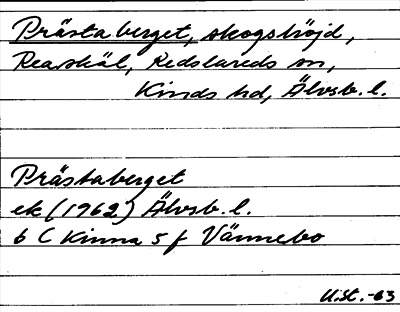 Prästaberget, skogshöjd,
Rearskäl, Redslareds sn,
Kinds hd, Älvsb. l.
Prästaberget
ek (1962) Älvsb. l.
6 C Kinna 5 f Vännebo
U.St.-63